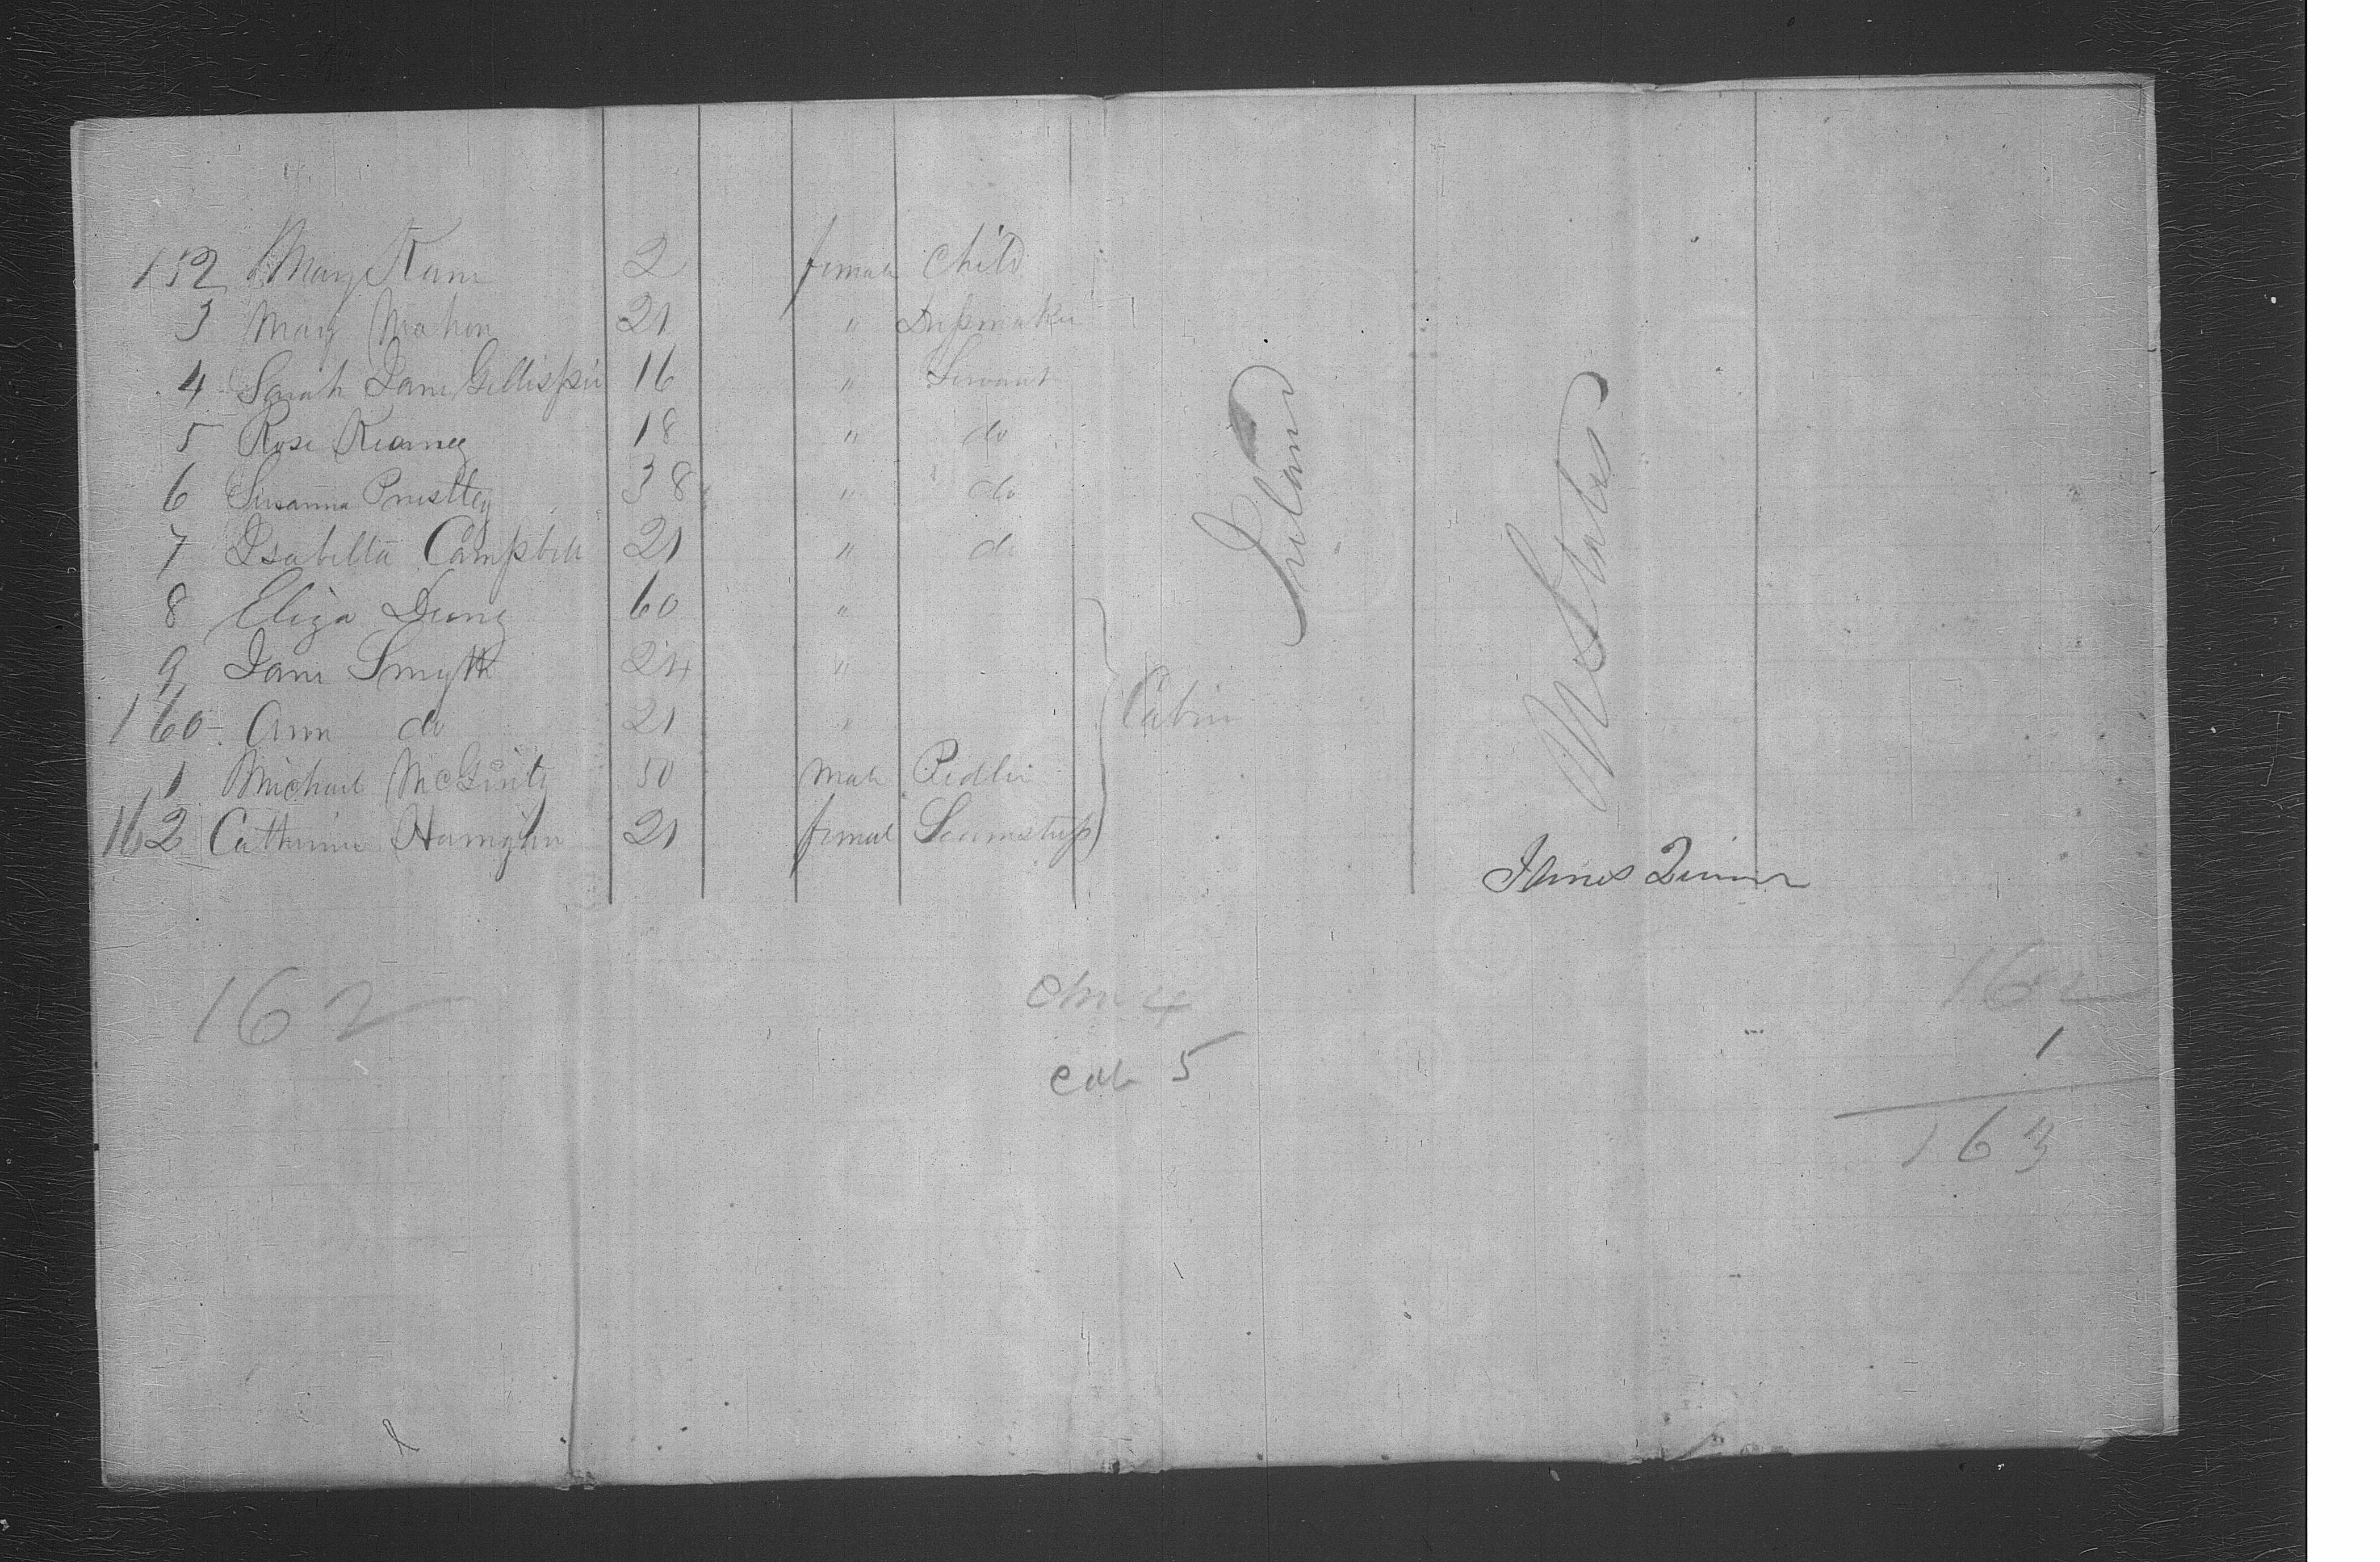 152 Mary Kane 2 female Child
3 Mary Mahon 21 " Dressmaker
4 Sarah Jane Gillispie 16 " Servant
5 Rose Kearney 18 " do
6 Susanna Priestley 38 " do
7 Isabella Campbell 21 " do
8 Eliza 60 "
9 Jane Smyth 24 "
160 Ann do 21 "
1 Michael McGinty 50 male Pedler
162 Catherine 21 female Seamstress
Cabin
Ireland
U States
James
162
Chn 4
Cab 5
162
1
163